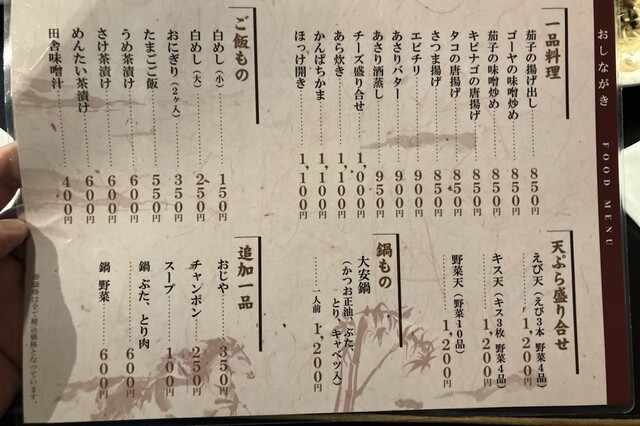 おしながき
FOOD MENU
一品料理
茄子の揚げ出し 850円
ゴーヤの味噌炒め 850円
茄子の味噌炒め 850円
キビナゴの唐揚げ 850円
タコの唐揚げ 850円
さつま揚げ 850円
エビチリ 900円
あさりバター 900円
あさり酒蒸し 950円
チーズ盛り合せ 1,000円
あら炊き 1,100円
かんぱちかま 1,100円
ほっけ開き 1,100円
ご飯もの
白めし(小) 150円
白めし(大) 250円
おにぎり(2ヶ入) 350円
たまごご飯 550円
うめ茶漬け 600円
さけ茶漬け 600円
めんたい茶漬け 600円
田舎味噌汁 400円
天ぷら盛り合せ
えび天(えび3本 野菜4品) 1,200円
キス天(キス3枚 野菜4品) 1,200円
野菜天(野菜10品) 1,200円
鍋もの
大安鍋
(かつお正油、ぶた、
とり、キャベツ入)
一人前 1,200円
追加一品
おじや 350円
チャンポン 250円
スープ 100円
鍋 ぶた、とり肉 600円
鍋 野菜 600円
※価格は全て税込価格となっています。